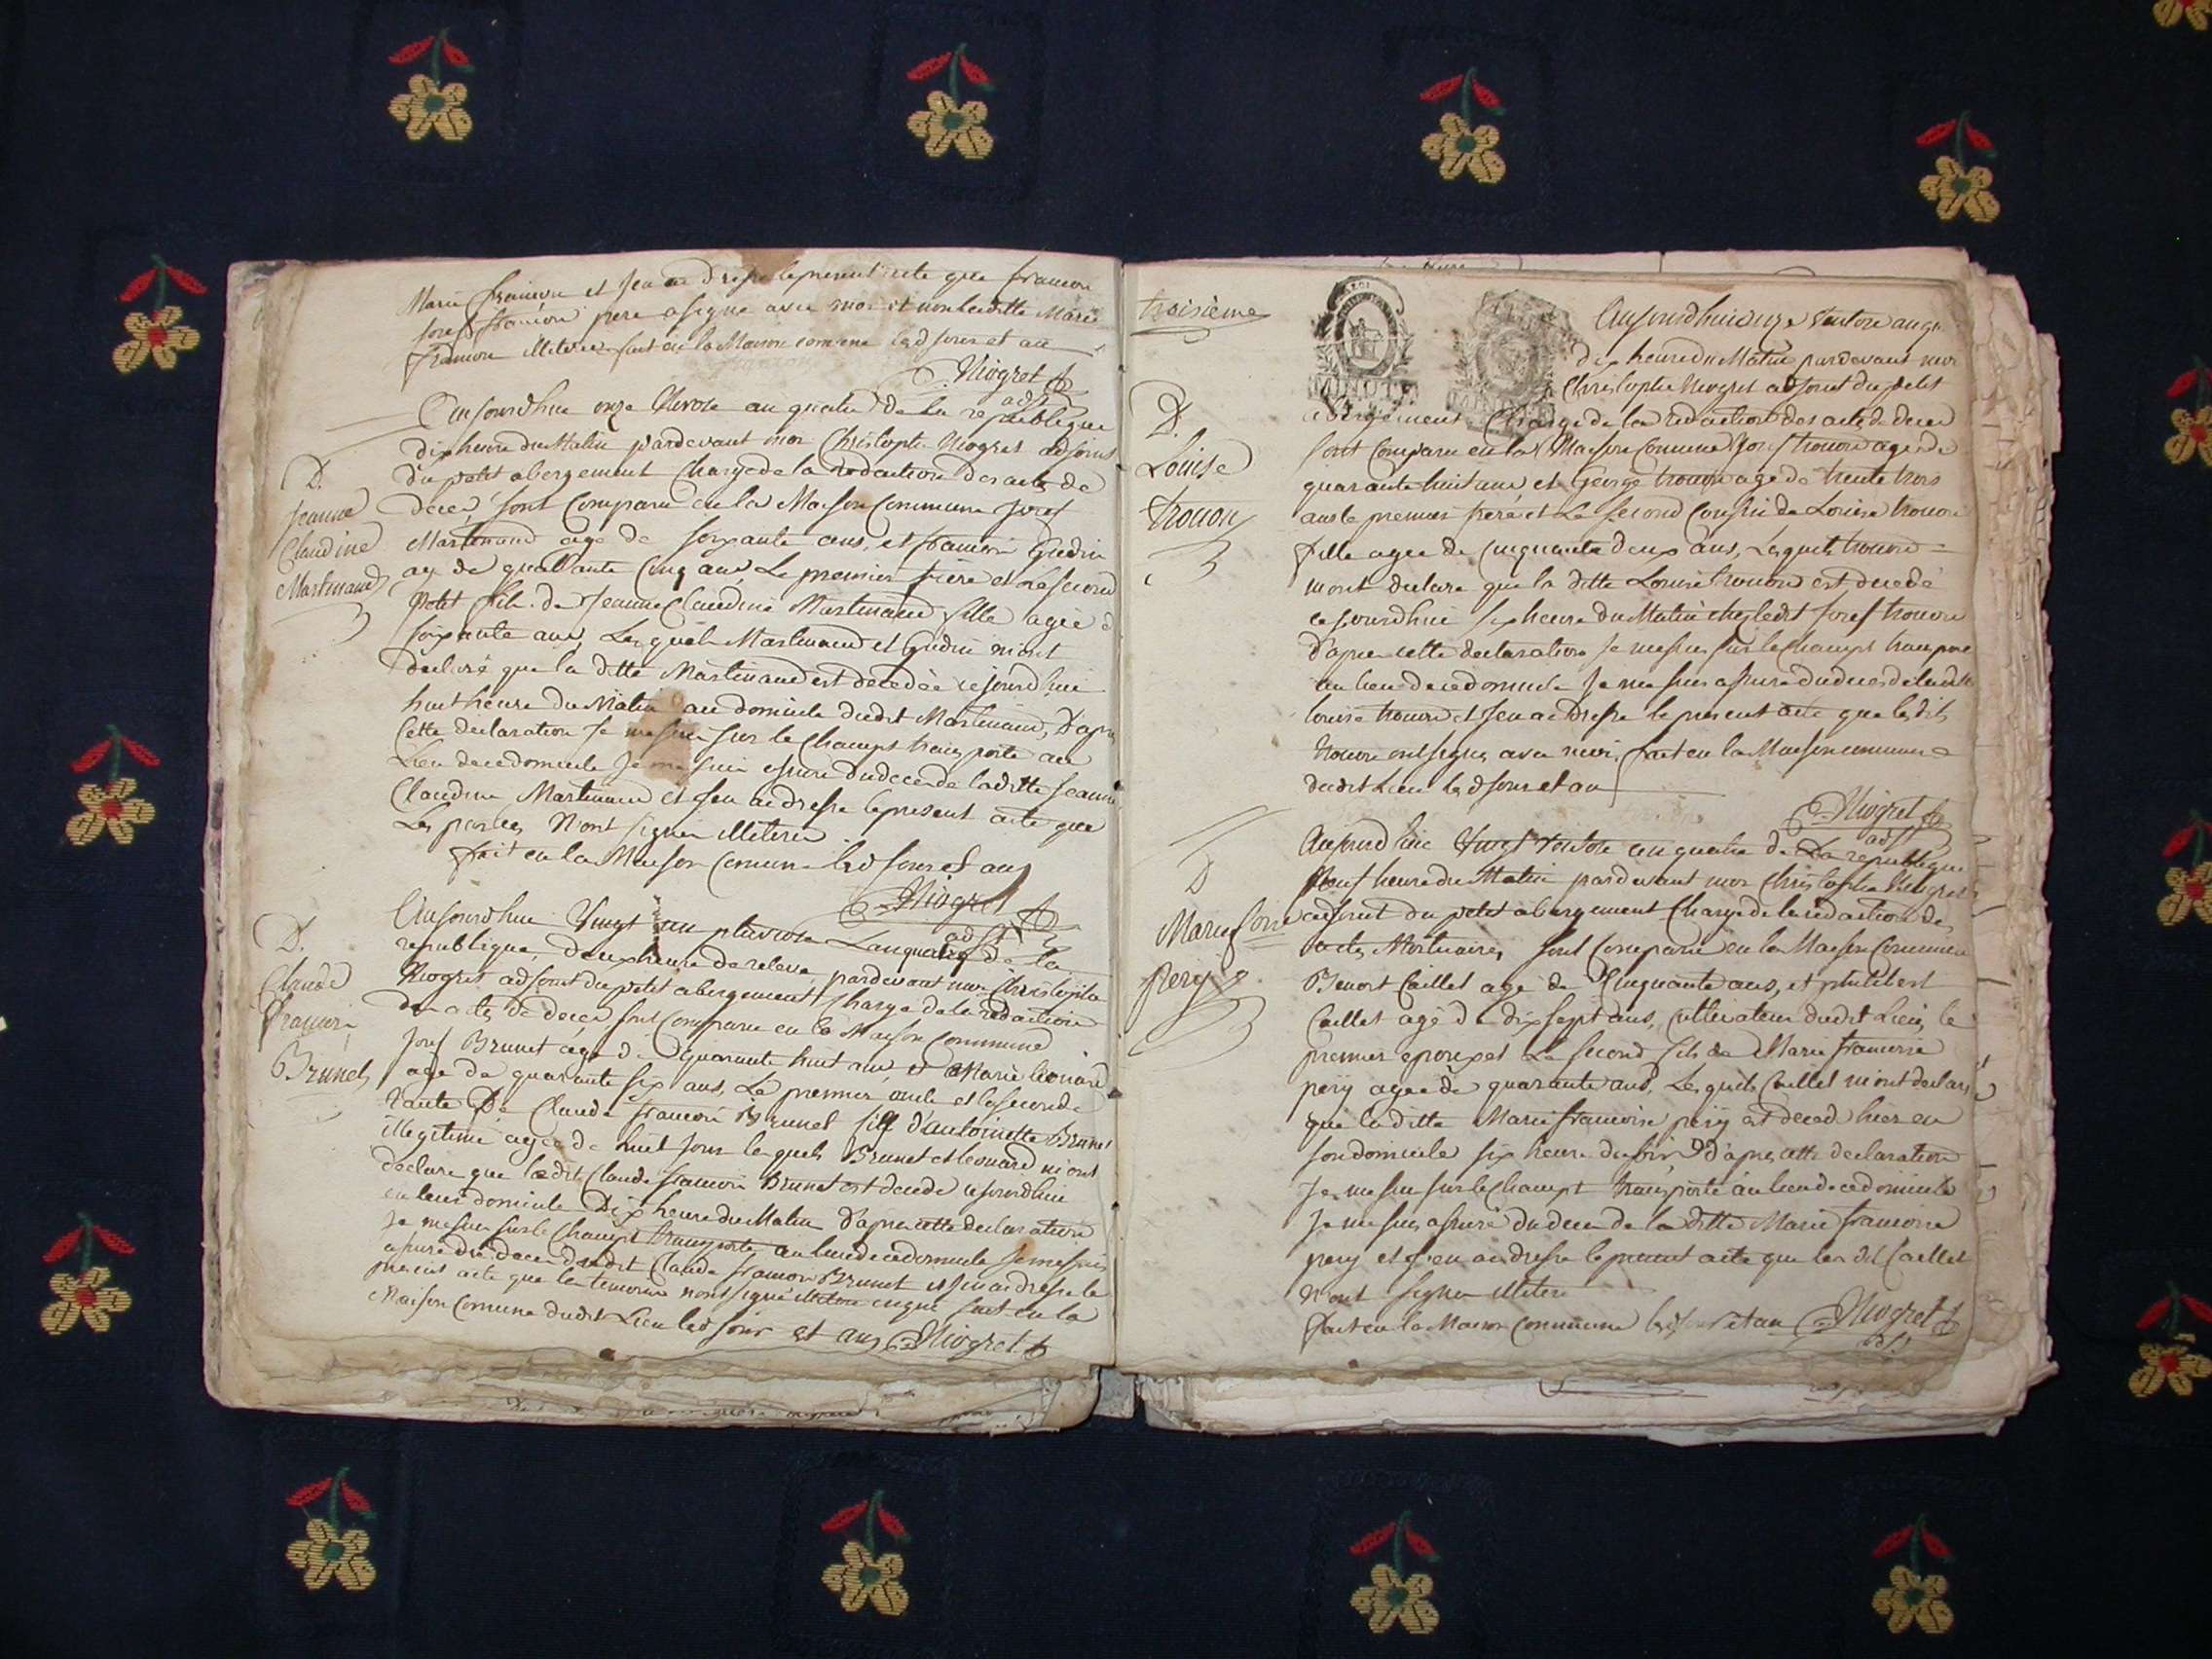 Marie francoise et Jen ai dressé le present acte que francon
Josef francon pere a signe avec moi et non laditte Marie
francon illiteré fait en la Maison comune led jour et an
Niogret
adjt
Aujourdhui onze Nivose an quatre de la republique
dix heure du Matin pardevant moi Christophe Niogret adjoint
du petit abergement Chargé de la redaction des acte de
D.
Jeanne
Claudine
Martinand
decé sont Comparu en la Maison Commune Josef
Martinand agé de soixante ans, et francois Gudin
agé de quarante Cinq ans, Le premier frere et Le second
petit fils de Jeanne Claudine Martinand fille agée de
soixante ans, Lesquels Martinand et Gudin m'ont
declaré que la ditte Martinand est decedée cejourdhui
huit heure du Matin au domicile dudit Martinand, D'apres
Cette declaration Je me suis sur le Champs transporté au
Lieu de ce domicile Je me suis assuré du deces de laditte Jeanne
Claudine Martinand et Jen ai dressé le present acte que
Les parties N'ont signer illiteré
fait en la Maison Comune led jour et an
Niogret
adjt
D.
Claude
francois
Brunet
Aujourdhui Vingt un pluviose Lan quatre de la
republique, deux heure de releve, pardevant moi Christophe
Niogret adjoint du petit abergement Chargé de la redaction
des acte de deces sont Comparu en la Maison Commune
Josef Brunet agé de quarante huit ans et Marie leonard
agé de quarante six ans, Le premier oncle et la seconde
tante De Claude francois Brunet fils d'antoinette Brunet
illegitime agée de huit jour lesquels Brunet et leonard m'ont
declaré que ledit Claude francois Brunet est decedé cejourdhui
en leur domicile Dix heure du Matin d'apres cette declaration
Je me suis sur le Champs transporté au lieu de ce domicile Je me suis
assuré du deces dudit Claude francois Brunet et Jen ai dressé le
present acte que les temoins n'ont signé illiteré fait en la
Maison Comune dudit Lieu led jour et an Niogret
troisieme
MINUTE
Aujourdhui onze Ventose an
dix heure du Matin pardevant moi
Christophe Niogret adjoint du petit
D.
Louise
trouon
abergement Chargé de la redaction des acte de deces
sont Comparu en la Maison Commune Josef trouon agé de
quarante huit ans et George trouon agé de trente trois
ans le premier frere et Le second Cousin de Louise trouon
fille agée de Cinquante deux ans, Lesquels trouon
m'ont declaré que la ditte Louise trouon est decedé
cejourdhui six heure du Matin chez ledit Josef trouon
d'apres cette declaration Je me suis sur le Champs transporté
au lieu de ce domicile Je me suis assuré du deces de laditte
Louise trouon et Jen ai dressé le present acte que lesdits
trouon ont signé avec moi, fait en la Maison commune
dudit Lieu led jour et an
Niogret
adjt
D
Marie foise
pery
Aujourdhui Vingt Ventose an quatre de La republique
Neuf heure du Matin pardevant moi Christophe Niogret
adjoint du petit abergement Chargé de la redaction de
actes Mortuaires sont Comparu en la Maison Commune
Benoit Caillet agé de Cinquante ans, et philibert
Caillet agé de dix sept ans, Cultivateur dudit Lieu, le
premier epoux et Le second fils de Marie francoise
pery agée de quarante ans, Lesquels Caillet m'ont declaré
que laditte Marie francoise pery est deced hier en
son domicile six heure du soir D'apres cette declaration
Je me suis sur le Champs transporté au lieu de ce domicile
Je me suis assuré du deces de la ditte Marie francoise
pery et Jen ai dressé le present acte que les dit Caillet
N'ont signer illiteré
fait en la Maison Commune led jour et an Niogret
adjt